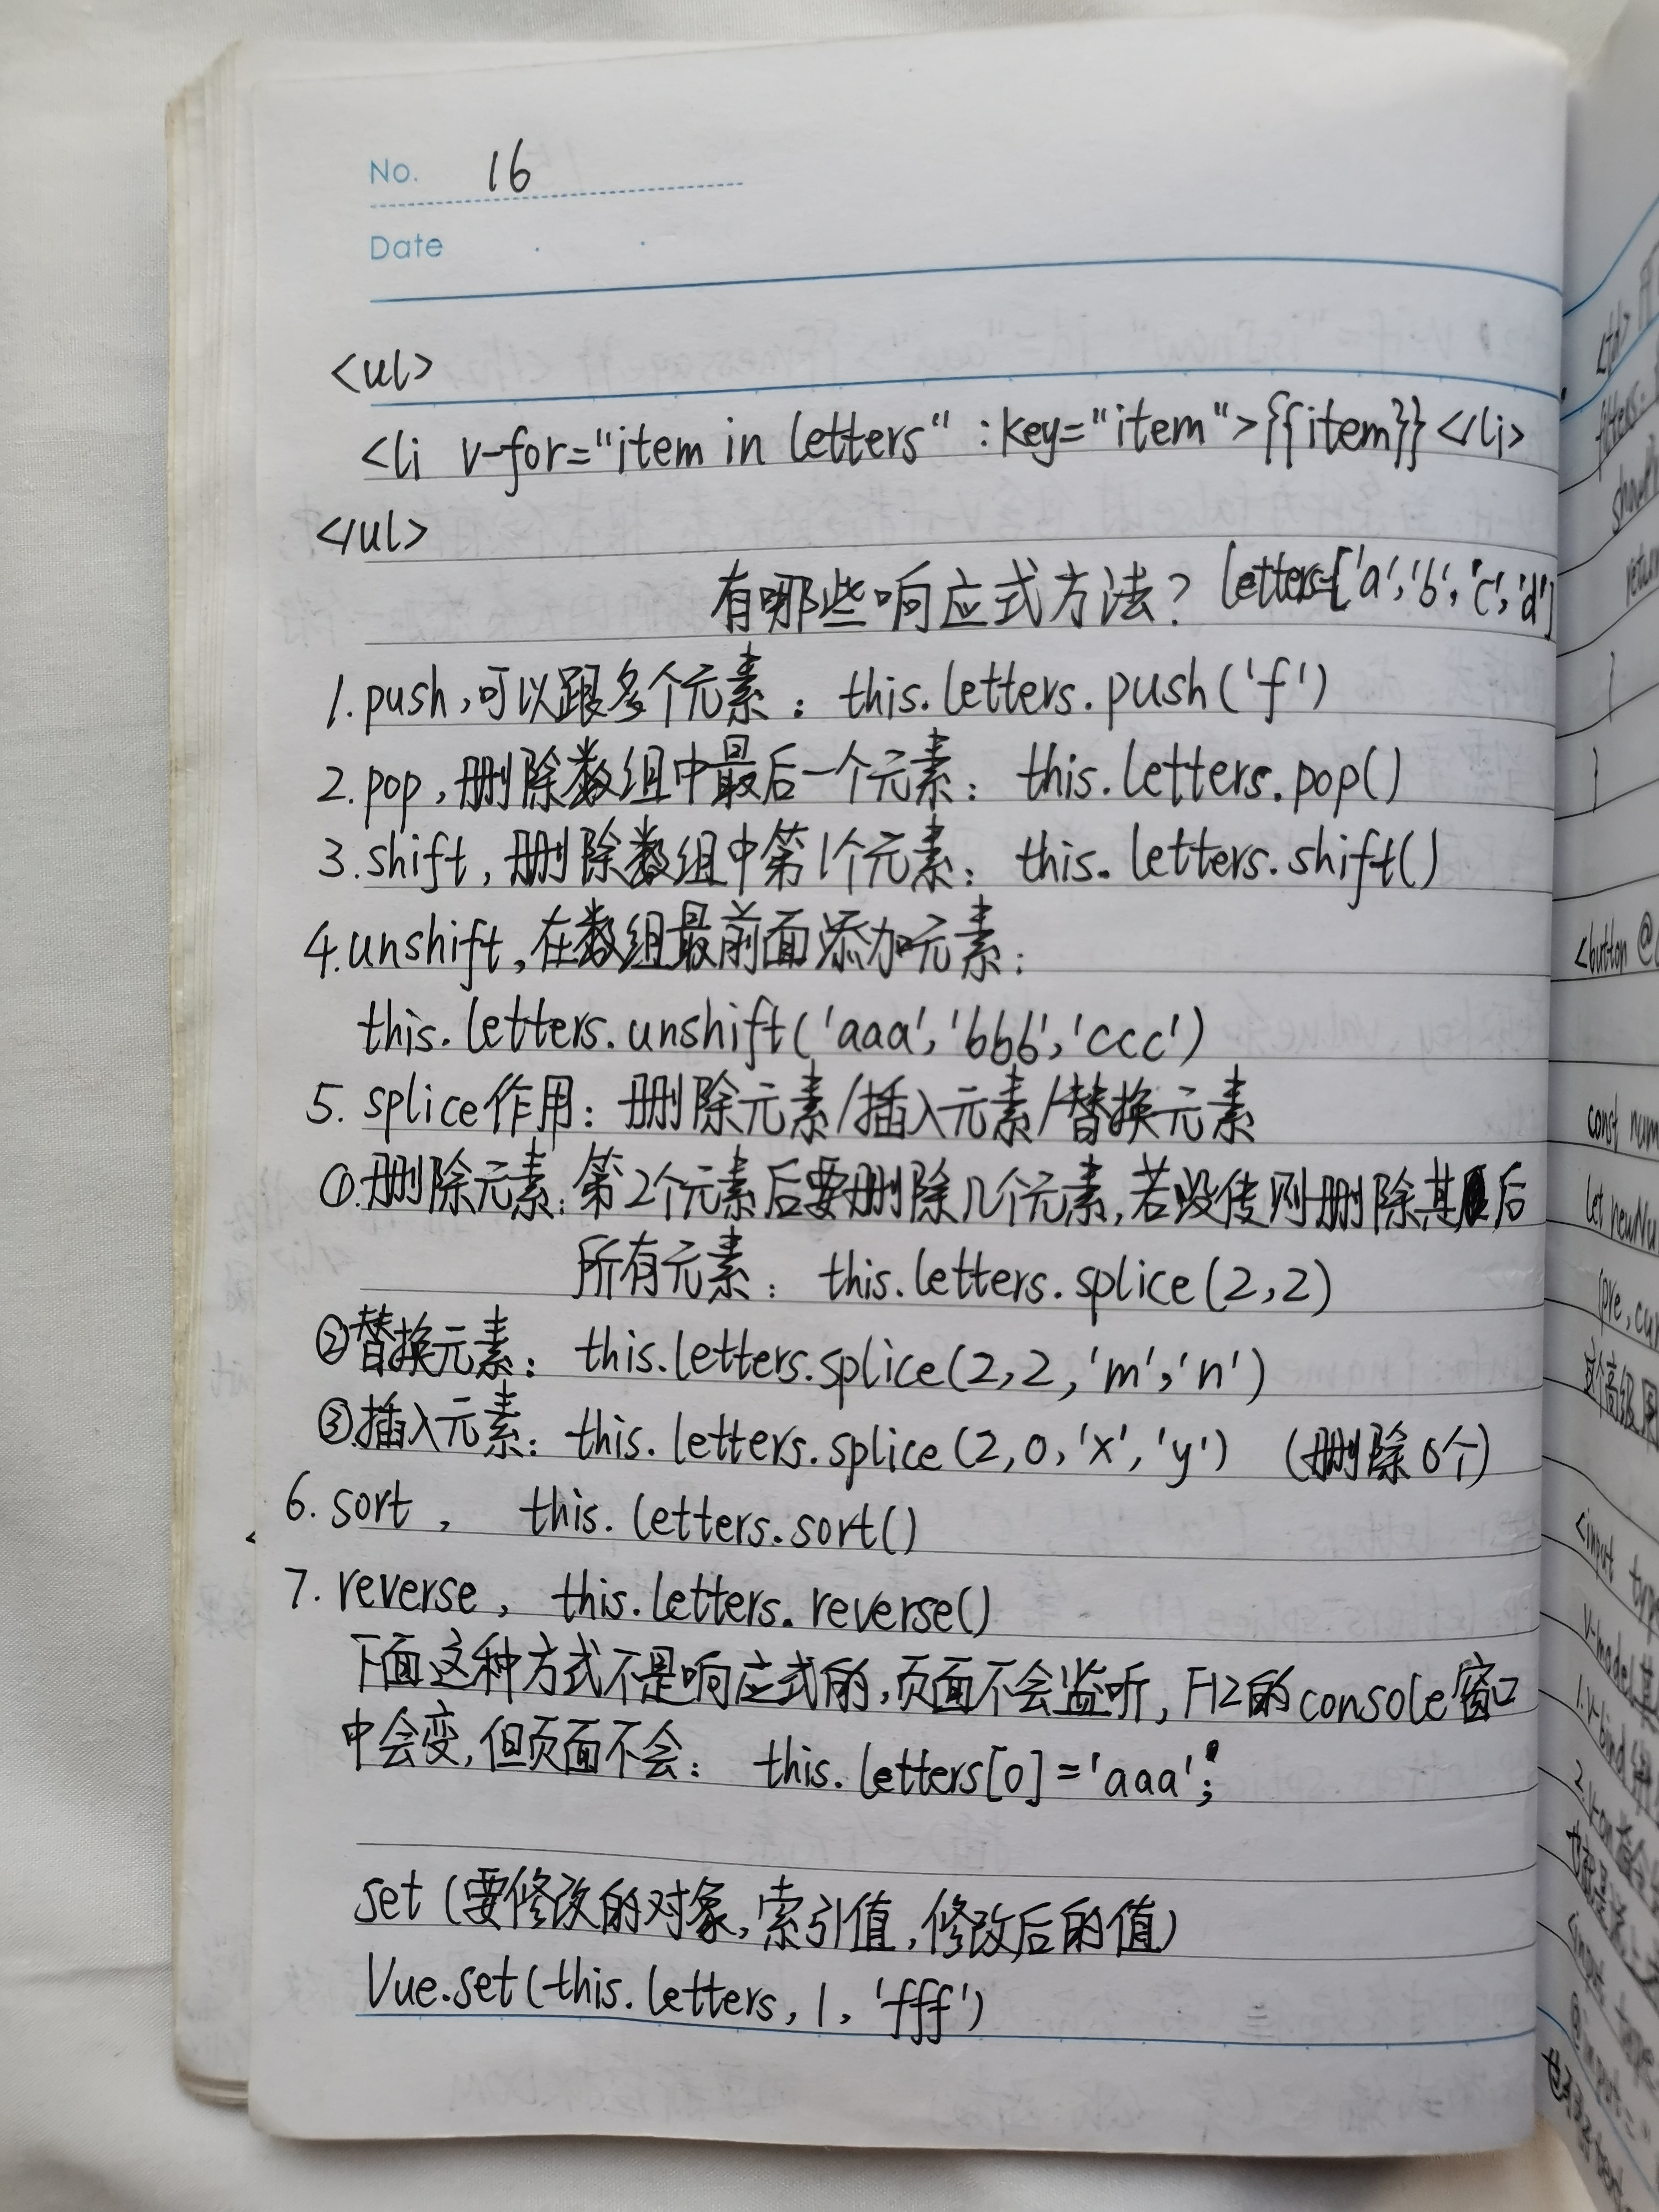 No. 16
Date
<ul>
<li v-for="item in letters" :key="item">{{item}}</li>
</ul>
有哪些响应式方法? letters=['a','b','c','d']
1.push,可以跟多个元素: this.letters.push('f')
2.pop,删除数组中最后一个元素: this.letters.pop()
3.shift,删除数组中第1个元素: this.letters.shift()
4.unshift,在数组最前面添加元素:
this.letters.unshift('aaa','bbb','ccc')
5.splice作用:删除元素/插入元素/替换元素
①.删除元素:第2个元素后要删除几个元素,若没传则删除其后
所有元素: this.letters.splice(2,2)
②替换元素: this.letters.splice(2,2,'m','n')
③.插入元素: this.letters.splice(2,0,'x','y') (删除0个)
6.sort, this.letters.sort()
7.reverse, this.letters.reverse()
下面这种方式不是响应式的,页面不会监听,F12的console窗口
中会变,但页面不会: this.letters[0]='aaa';
set(要修改的对象,索引值,修改后的值)
Vue.set(this.letters,1,'fff')
<td>
filters:
return
}
}
<button @
const num
let newNu
(pre,cur
<input type
v-model